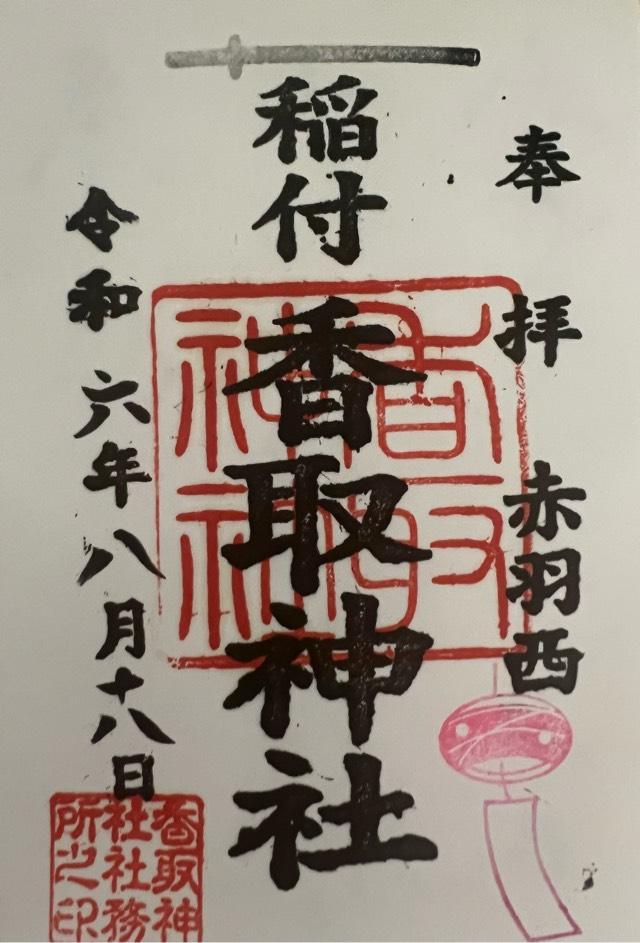 奉拝 赤羽西
稲付
香取神社
令和六年八月十八日
香取神社
香取神社社務所之印